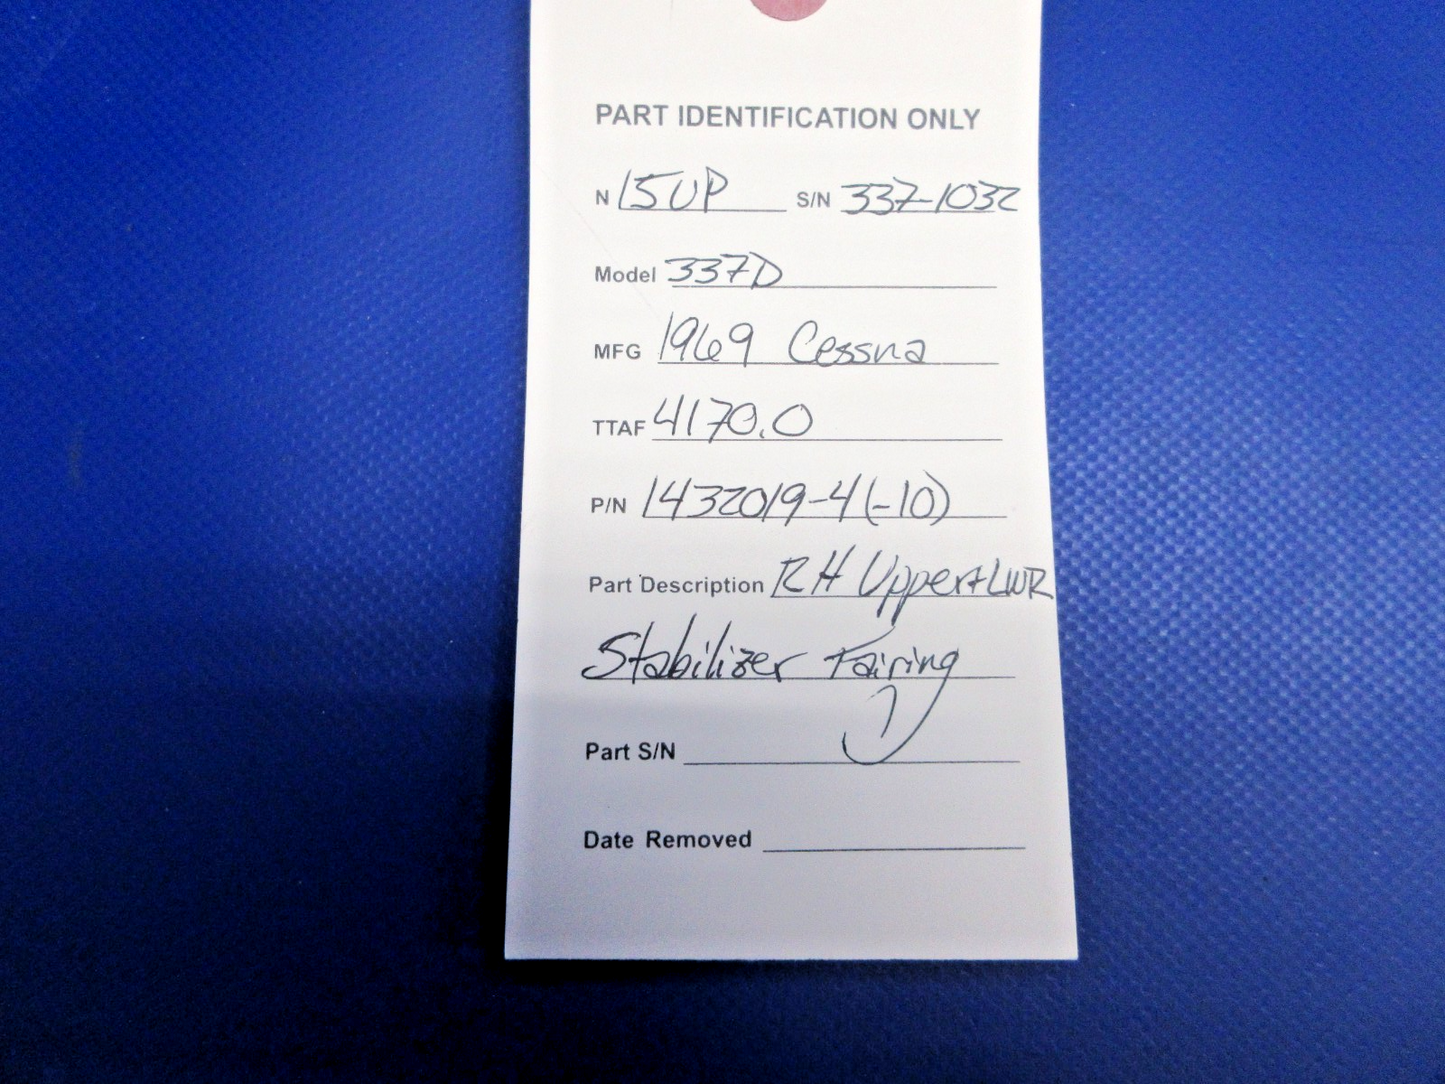 PART IDENTIFICATION ONLY
N 15UP S/N 337-1032
Model 337D
MFG 1969 Cessna
TTAF 4170.0
P/N 1432019-4(-10)
Part Description RH Upper+LWR
Stabilizer Fairing
Part S/N
Date Removed